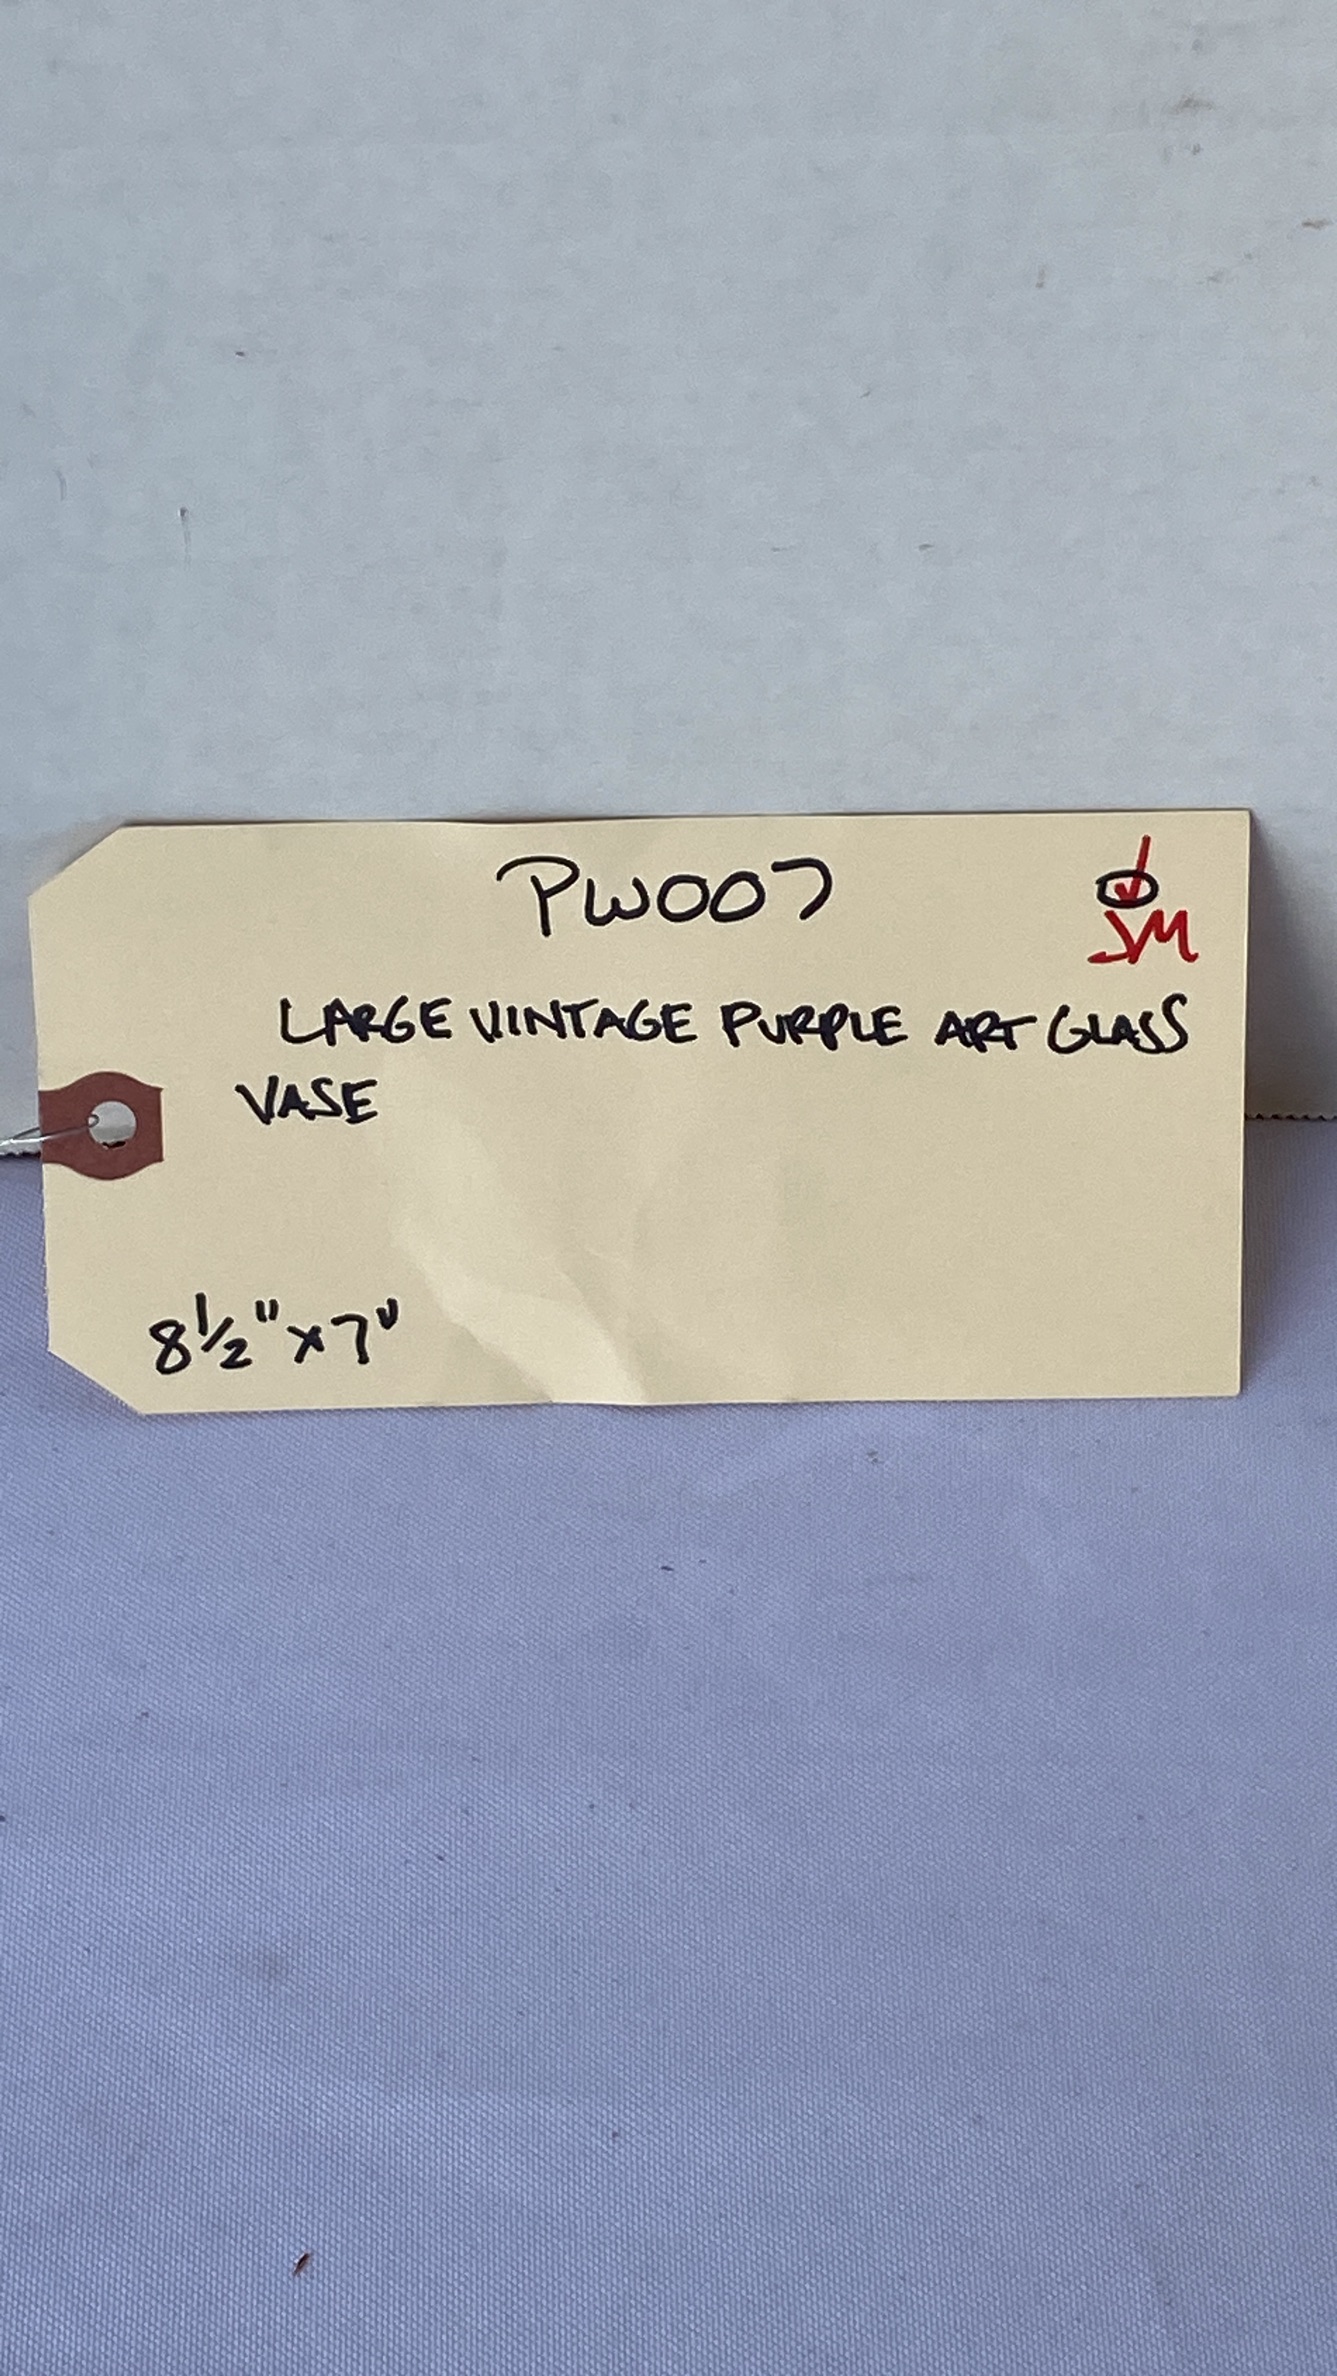 PW007
JM
LARGE VINTAGE PURPLE ART GLASS
VASE
8 1/2" x 7"